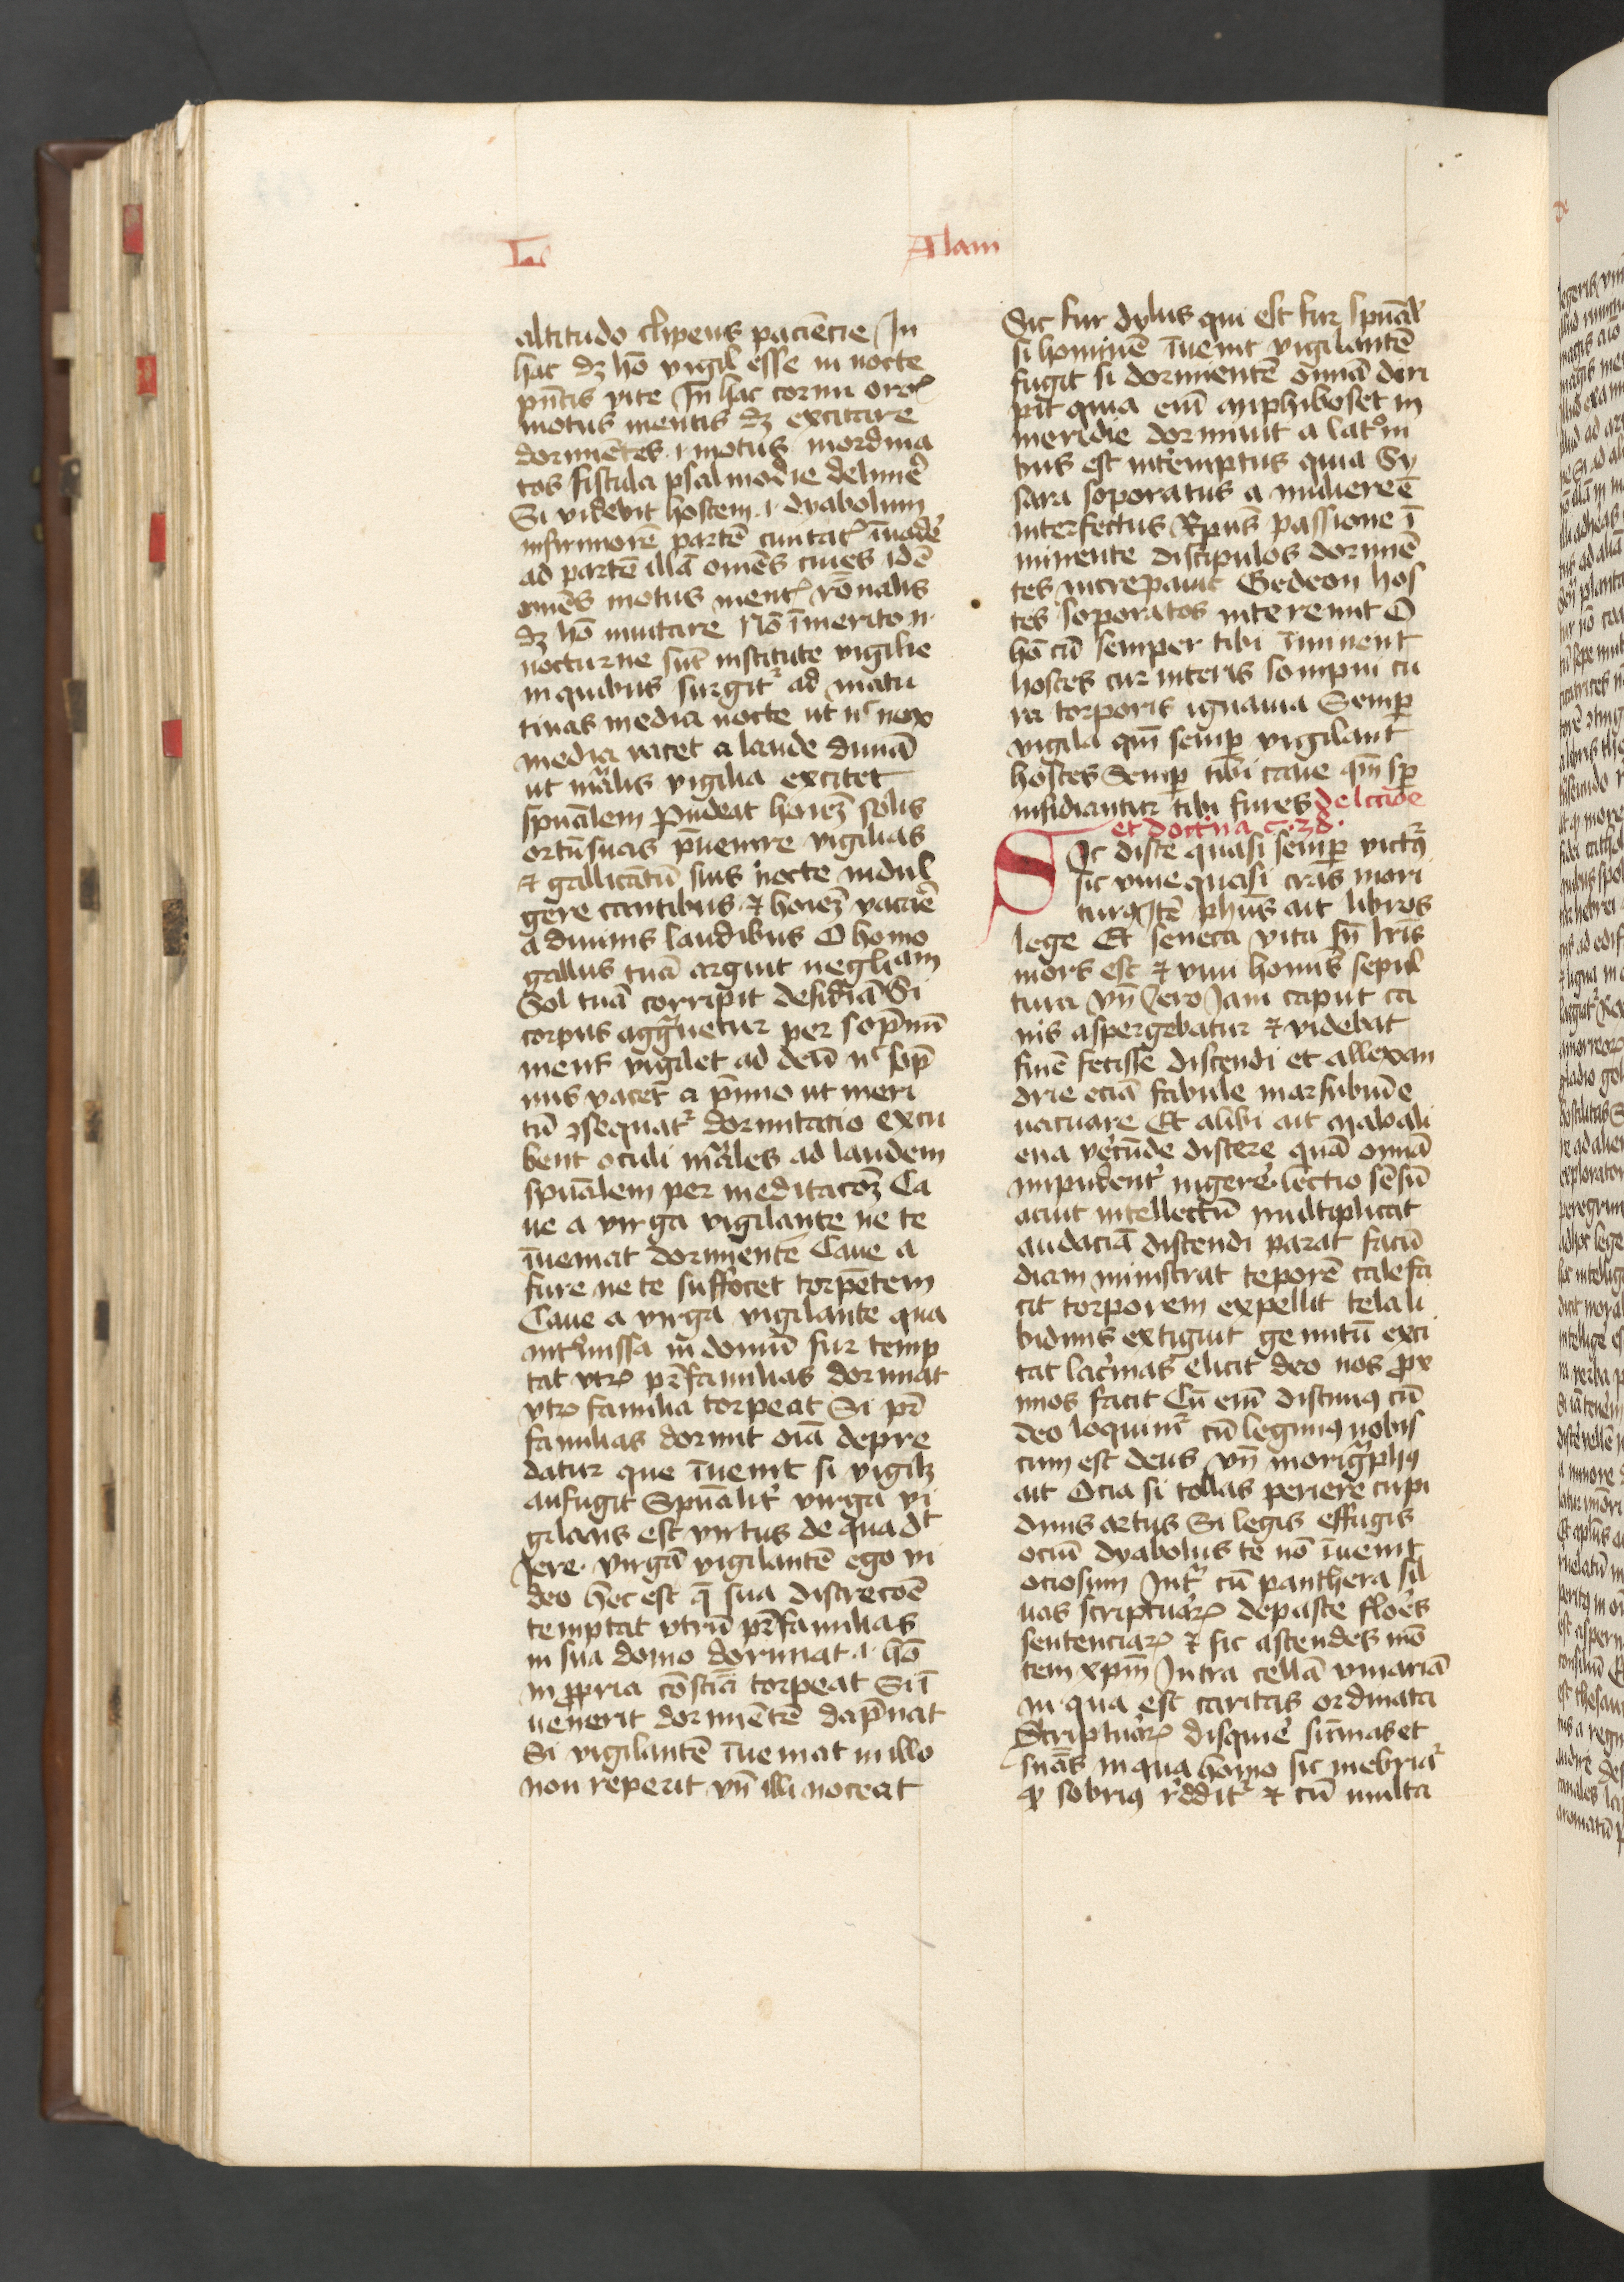 L
Alani
altitudo clipeus paciēcie In
hac dꝫ hō vigil esse in nocte
pn̄tis vite In hac cornu oroꝭ
motus mentis dꝫ excitare
dormiētes .i. motus inordina
tos fistula psalmodie delinire
Si viderit hostem .i. dyabolum
infirmiorē partē ciuitatꝭ īuadeꝛ̄
ad partē illā om̄es ciues idē
om̄es motus mentꝭ rōnalis
dꝫ hō inuitare Nō īmerito n̄
nocturne sūt institute vigilie
in quibus surgitꝛ ad matu
tinas media nocte ut nͨ nox
media vacet a laude diuīa
ut māͬlis vigilia excitet
spūalem Pudeat hoīeꝫ solis
ortū suas p̄uenire vigilias
⁊ gallicātū suis nocte indul
gere cantibus ⁊ hoīeꝫ vacare
a diuinis laudibus O homo
gallus tuā arguit negliam
Sol tuā corripit desidiā Si
corpus aggͣuetur per sopnū
mens vigilet ad deū nͨ sop
nus vacet a p̄mio ut meri
tū ꝯsequatꝛ dormitacio excu
bent oculi māͬles ad laudem
spūalem per meditacōeꝫ Ca
ue a virga vigilante ne te
īueniat dormientē Caue a
fure ne te suffocet torpētem
Caue a virga vigilante qua
intͬmissa in domū fur temp
tat vtrꝫ prͬfamilias dormiat
vtrꝫ familia torpeat Si prͬ
familias dormit oīa depre
datur que īuenit si vigilꝫ
aufugit Spūalitͬ virga vi
gilans est virtus de qua dt
Iere. virgā vigilantē ego vi
deo hec est q̄ sua discrecōe
temptat vtrū prͬfamilias
in sua domo dormiat .i. hō
in ꝓpria cōsciā torpeat Si ī
uenerit dormiētē dapnat
Si vigilantē īueniat in illo
non reperit vn̄ illi noceat
Sic fur dylus qui est fur spūalͬ
si hominē īuenit vigilantē
fugit si dormientē omīa diri
pit quia eni̅ myphiboset in
meridie dormiuit a latͦni
bus est intͬemptus quia Sy
sara soporatus a muliere ē
interfectus Xpūs passione ī
minente discipulos dormiē
tes increpauit Gedeon hos
tes soporatos interemit O
hō cū semper tibi īminent
hostes cur interis sompni cu
ra torporis ignauia Semp̱
vigila qm̄ semp̱ vigilant
hostes Semp̱ tibi caue qm̄ sp̱
insidiantur tibi fures de lcc̄ioe
et doctͥna c. 38.
Sic disce quasi semp̱ victꝰ
sic viue quasi cras mori
turꝰ Itē phūs ait libros
lege Et seneca vita sn̄ lrīs
mors est ⁊ viui homīs sepul
tura Vn̄ Cero Iam caput ca
nis aspergebatur ⁊ videbat
finē fecisse discendi et allexan
drie eciā fabule marsubiū e
uacuare Et alibi ait Malo ali
ena verecūde discere quā omīa
impudentͬ ingerere. lectio sēsū
acuit intellectū multiplicat
audaciā discendi parat facū
diam ministrat teporē calefa
cit torporem expellit tela li
bidinis extīguit gemitū exci
tat lacͥmas elicit deo nos ꝓx
imos facit Cū eni̅ discimꝰ cū
deo loquimͬ cū legimꝰ nobis
cum est deus vn̄ morigͣphꝰ
ait Ocia si tollas periere cupi
dinis artus Si legis effugis
ociū dyabolus te nō īuenit
ociosum Intͣ cū panthera sil
uas scripturaꝝ depasce flores
sentenciaꝝ ⁊ sic ascendes mō
tem xpm̄ Intra cellā vinariā
in qua est caritas ordinata
Scripturaꝝ disquire sūmas et
suās in qua homo sic inebriatꝛ
ꝙ sobriꝰ rͬdditͬ ⁊ cū multa